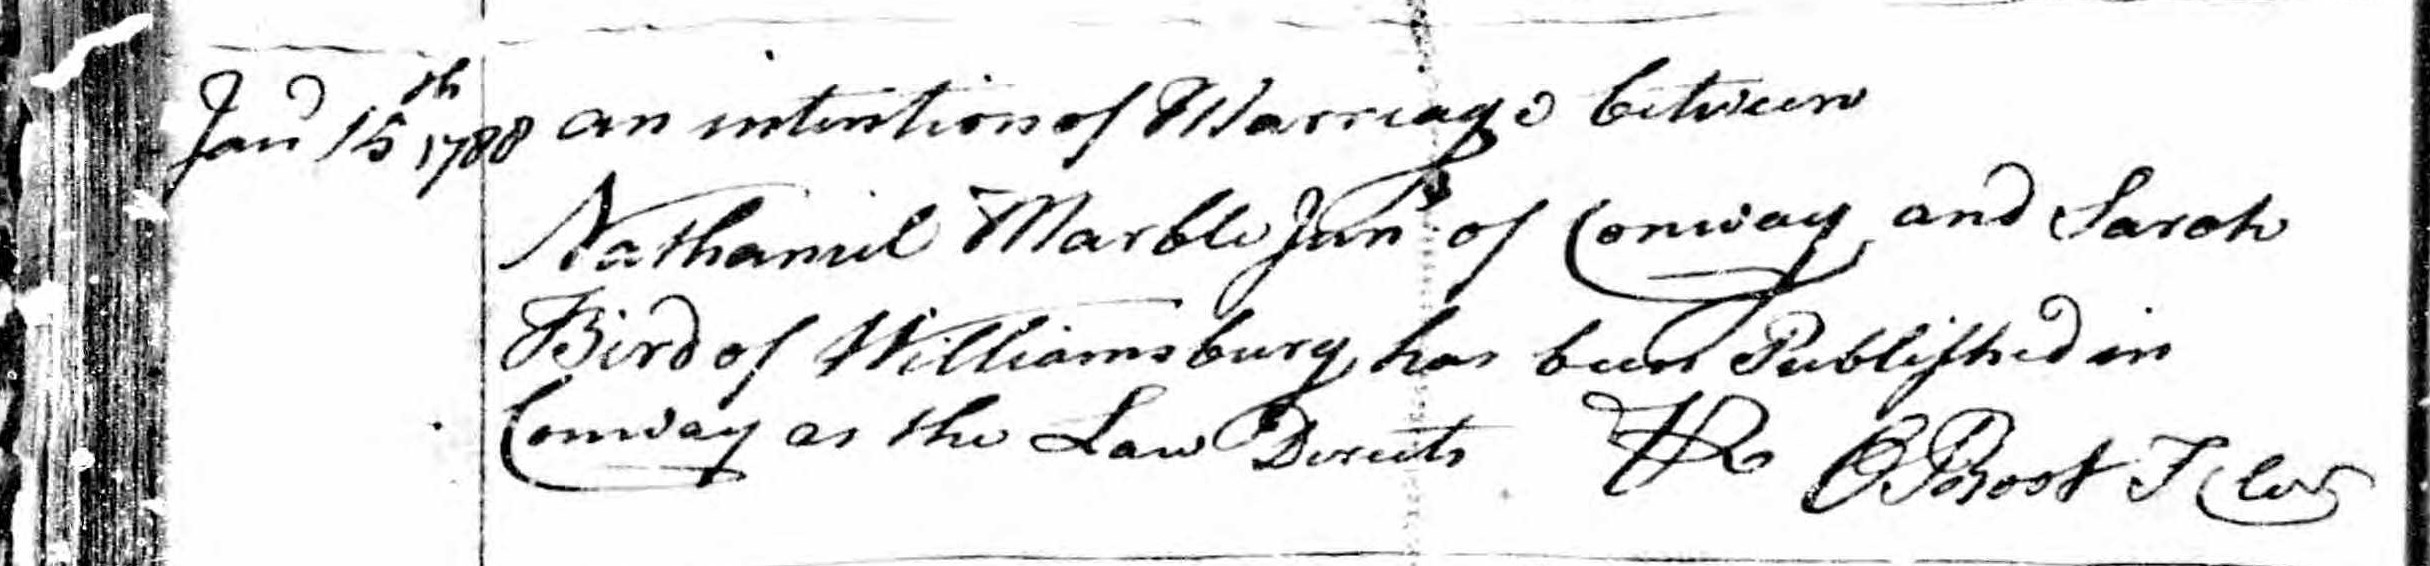 Jan^y 15^th 1788 an intention of Marriage between
Nathaniel Marble Jun^r of Conway and Sarah
Bird of Williamsburg has been Published in
Conway as the Law Directs O Root T Cler